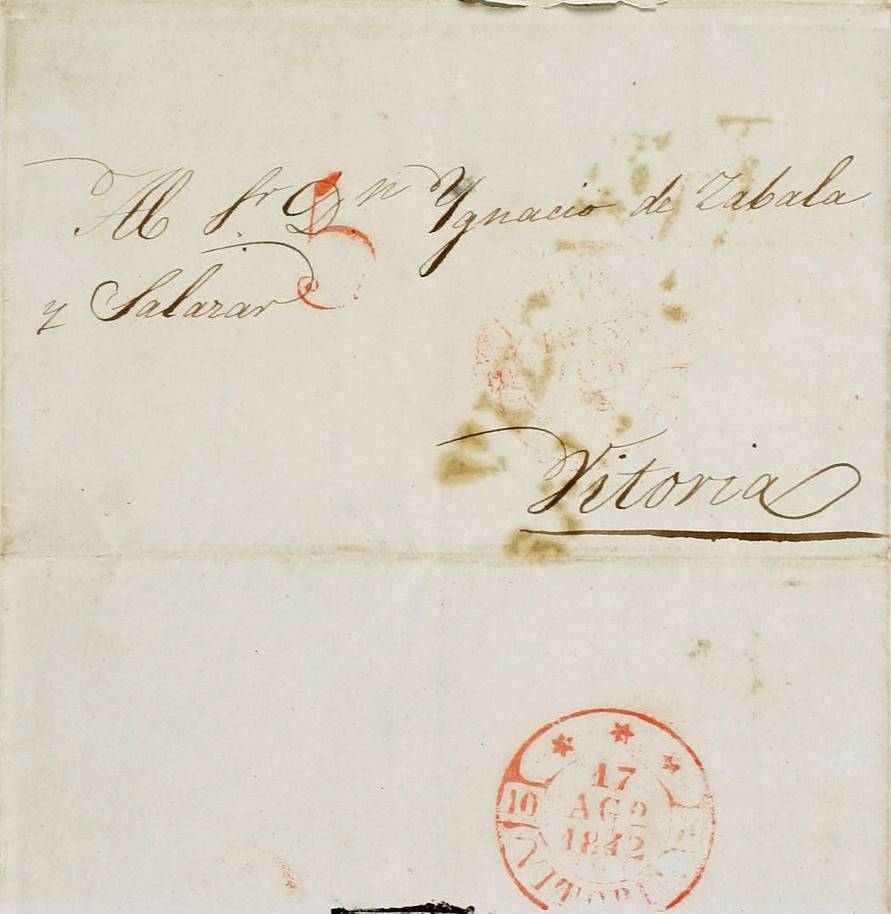 Al Sr. Dn Ygnacio de Zabala
y Salazar
5
Vitoria
17
AGO
1842
10